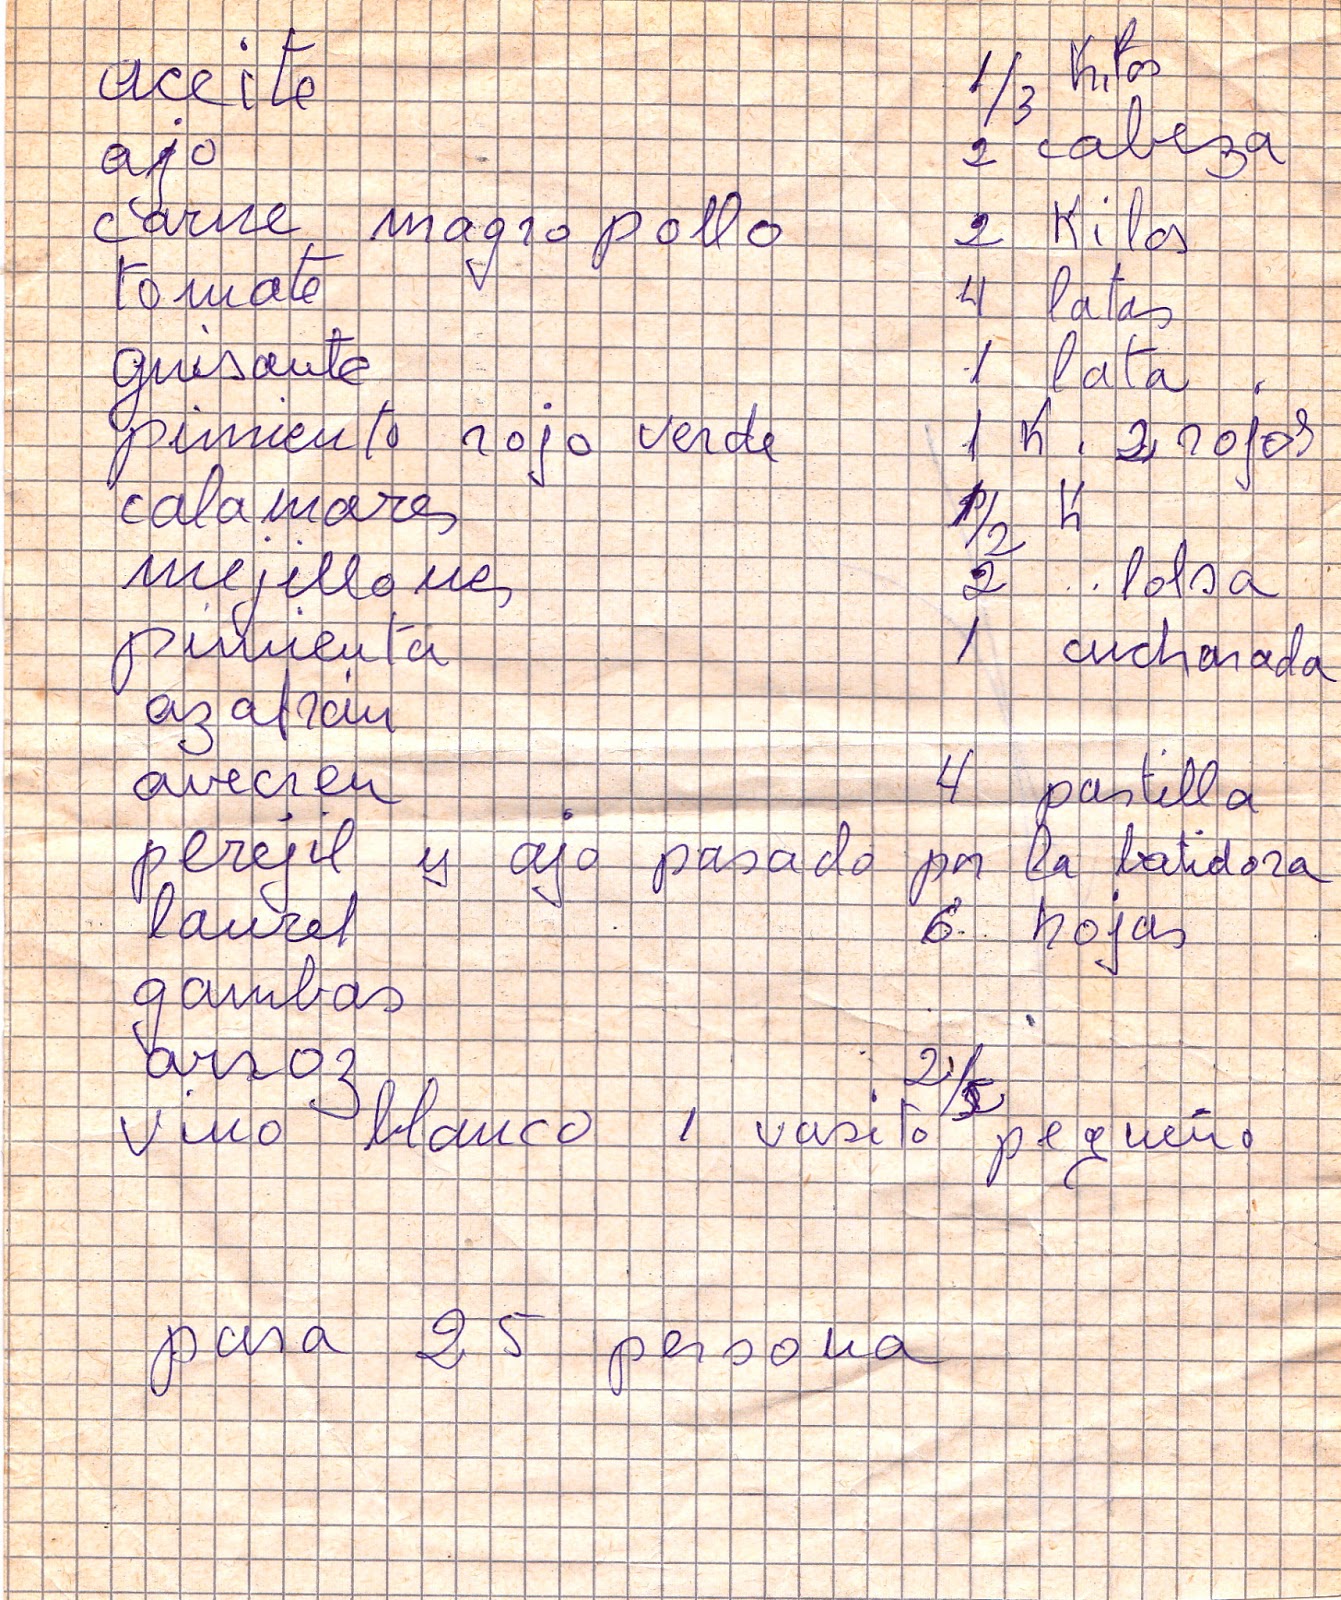 aceite 1/3 Kilos
ajo 2 cabeza
carne magro pollo 2 Kilos
tomate 4 latas
guisante 1 lata
pimiento rojo verde 1 K. 2 rojos
calamares 1/2 K
mejillones 2 bolsa
pimienta 1 cucharada
azafrán
avecren 4 pastilla
perejil y ajo pasado por la batidora
laurel 6 hojas
gambas
arroz
vino blanco 1 vasito pequeño
para 25 persona